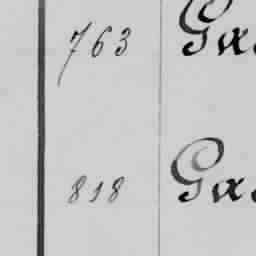 763 Ga
818 Ga